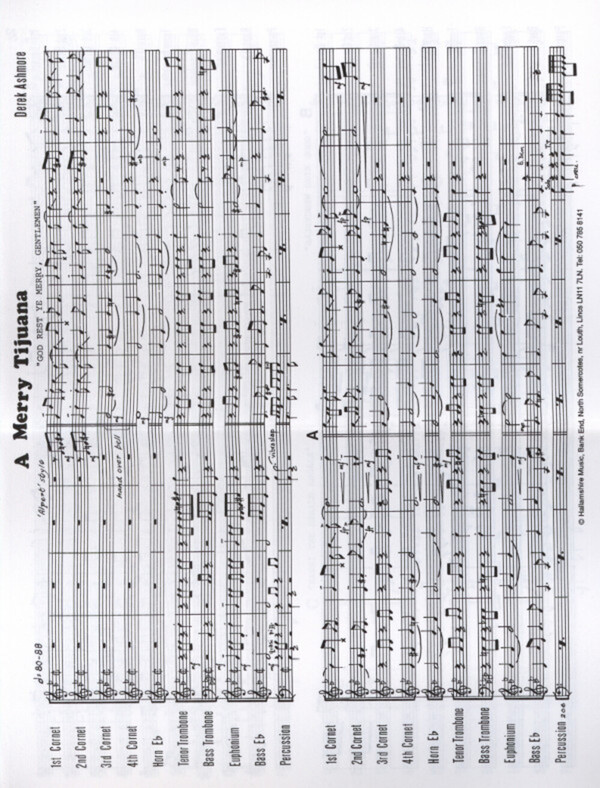 A Merry Tijuana
"GOD REST YE MERRY, GENTLEMEN"
Derek Ashmore
80-88
'Alpert' style
1st Cornet
2nd Cornet
3rd Cornet
hand over bell
4th Cornet
Horn E♭
Tenor Trombone
Bass Trombone
Euphonium
Bass E♭
Percussion
A
1st Cornet
2nd Cornet
3rd Cornet
4th Cornet
Horn E♭
Tenor Trombone
Bass Trombone
Euphonium
Bass E♭
Percussion
© Hallamshire Music, Bank End, North Somercotes, nr Louth, Lincs LN11 7LN. Tel: 050 785 8141